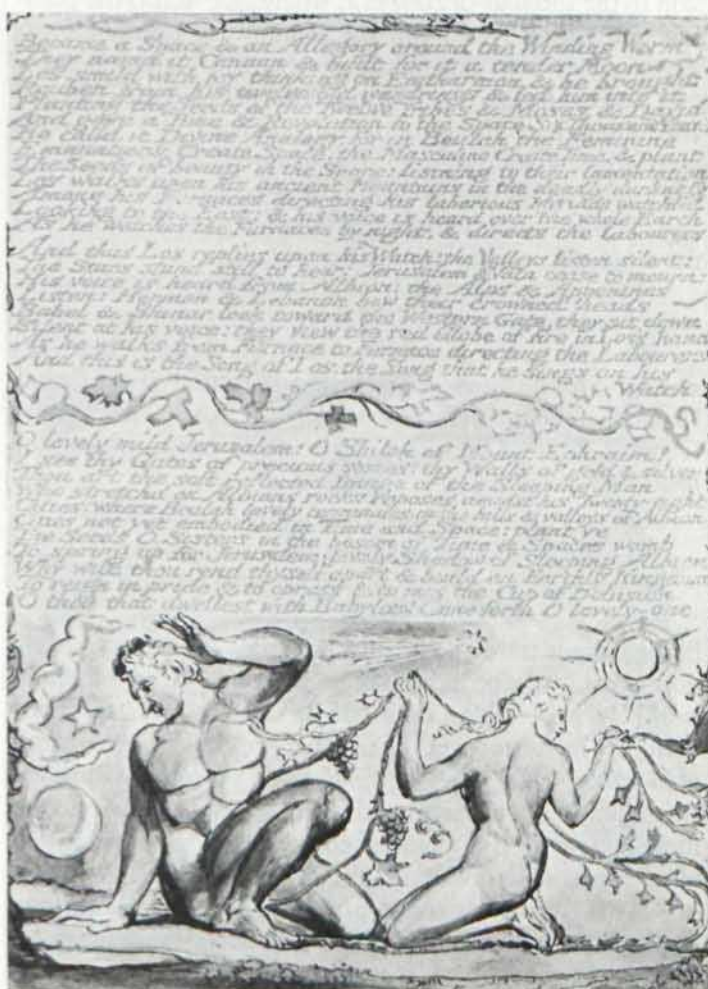 Became a Space & an Allegory around the Winding Worm
They namd it Canaan & built for it a tender Moon
Los smild with joy thinking on Enitharmon & he brought
Reuben from his twelvefold wandrings & led him into it
Planting the Seeds of the Twelve Tribes & Moses & David
And gave a Time & Revolution to the Space Six Thousand Years
He calld it Divine Analogy; for in Beulah the Feminine
Emanations Create Space. the Masculine Create Time, & plant
The Seeds of beauty in the Space: listning to their lamentation
Los walks upon his ancient Mountains in the deadly darkness
Among his Furnaces directing his laborious Myriads watchful
Looking to the East: & his voice is heard over the whole Earth
As he watches the Furnaces by night, & directs the labourers
And thus Los replies upon his Watch: the Valleys listen silent:
The Stars stand still to hear: Jerusalem & Vala cease to mourn:
His voice is heard from Albion: the Alps & Appenines
Listen: Hermon & Lebanon bow their crowned heads
Babel & Shinar look toward the Western Gate, they sit down
Silent at his voice: they view the red Globe of fire in Los's hand
As he walks from Furnace to Furnace directing the Labourers
And this is the Song of Los, the Song that he sings on his
Watch
O lovely mild Jerusalem! O Shiloh of Mount Ephraim!
I see thy Gates of precious stones: thy Walls of gold & silver
Thou art the soft reflected Image of the Sleeping Man
Who stretchd on Albions rocks reposes amidst his
Cities: where Beulah lovely terminates, in the hills & valleys of Albion
Cities not yet embodied in Time and Space: plant ye
The Seeds O Sisters in the bosom of Time & Spaces womb
To spring up for Jerusalem: lovely Shadow of Sleeping Albion
Why wilt thou rend thyself apart & build an Earthly Kingdom
To reign in pride & to opress & to mix the Cup of Delusion
O thou that dwellest with Babylon! Come forth O lovely-one